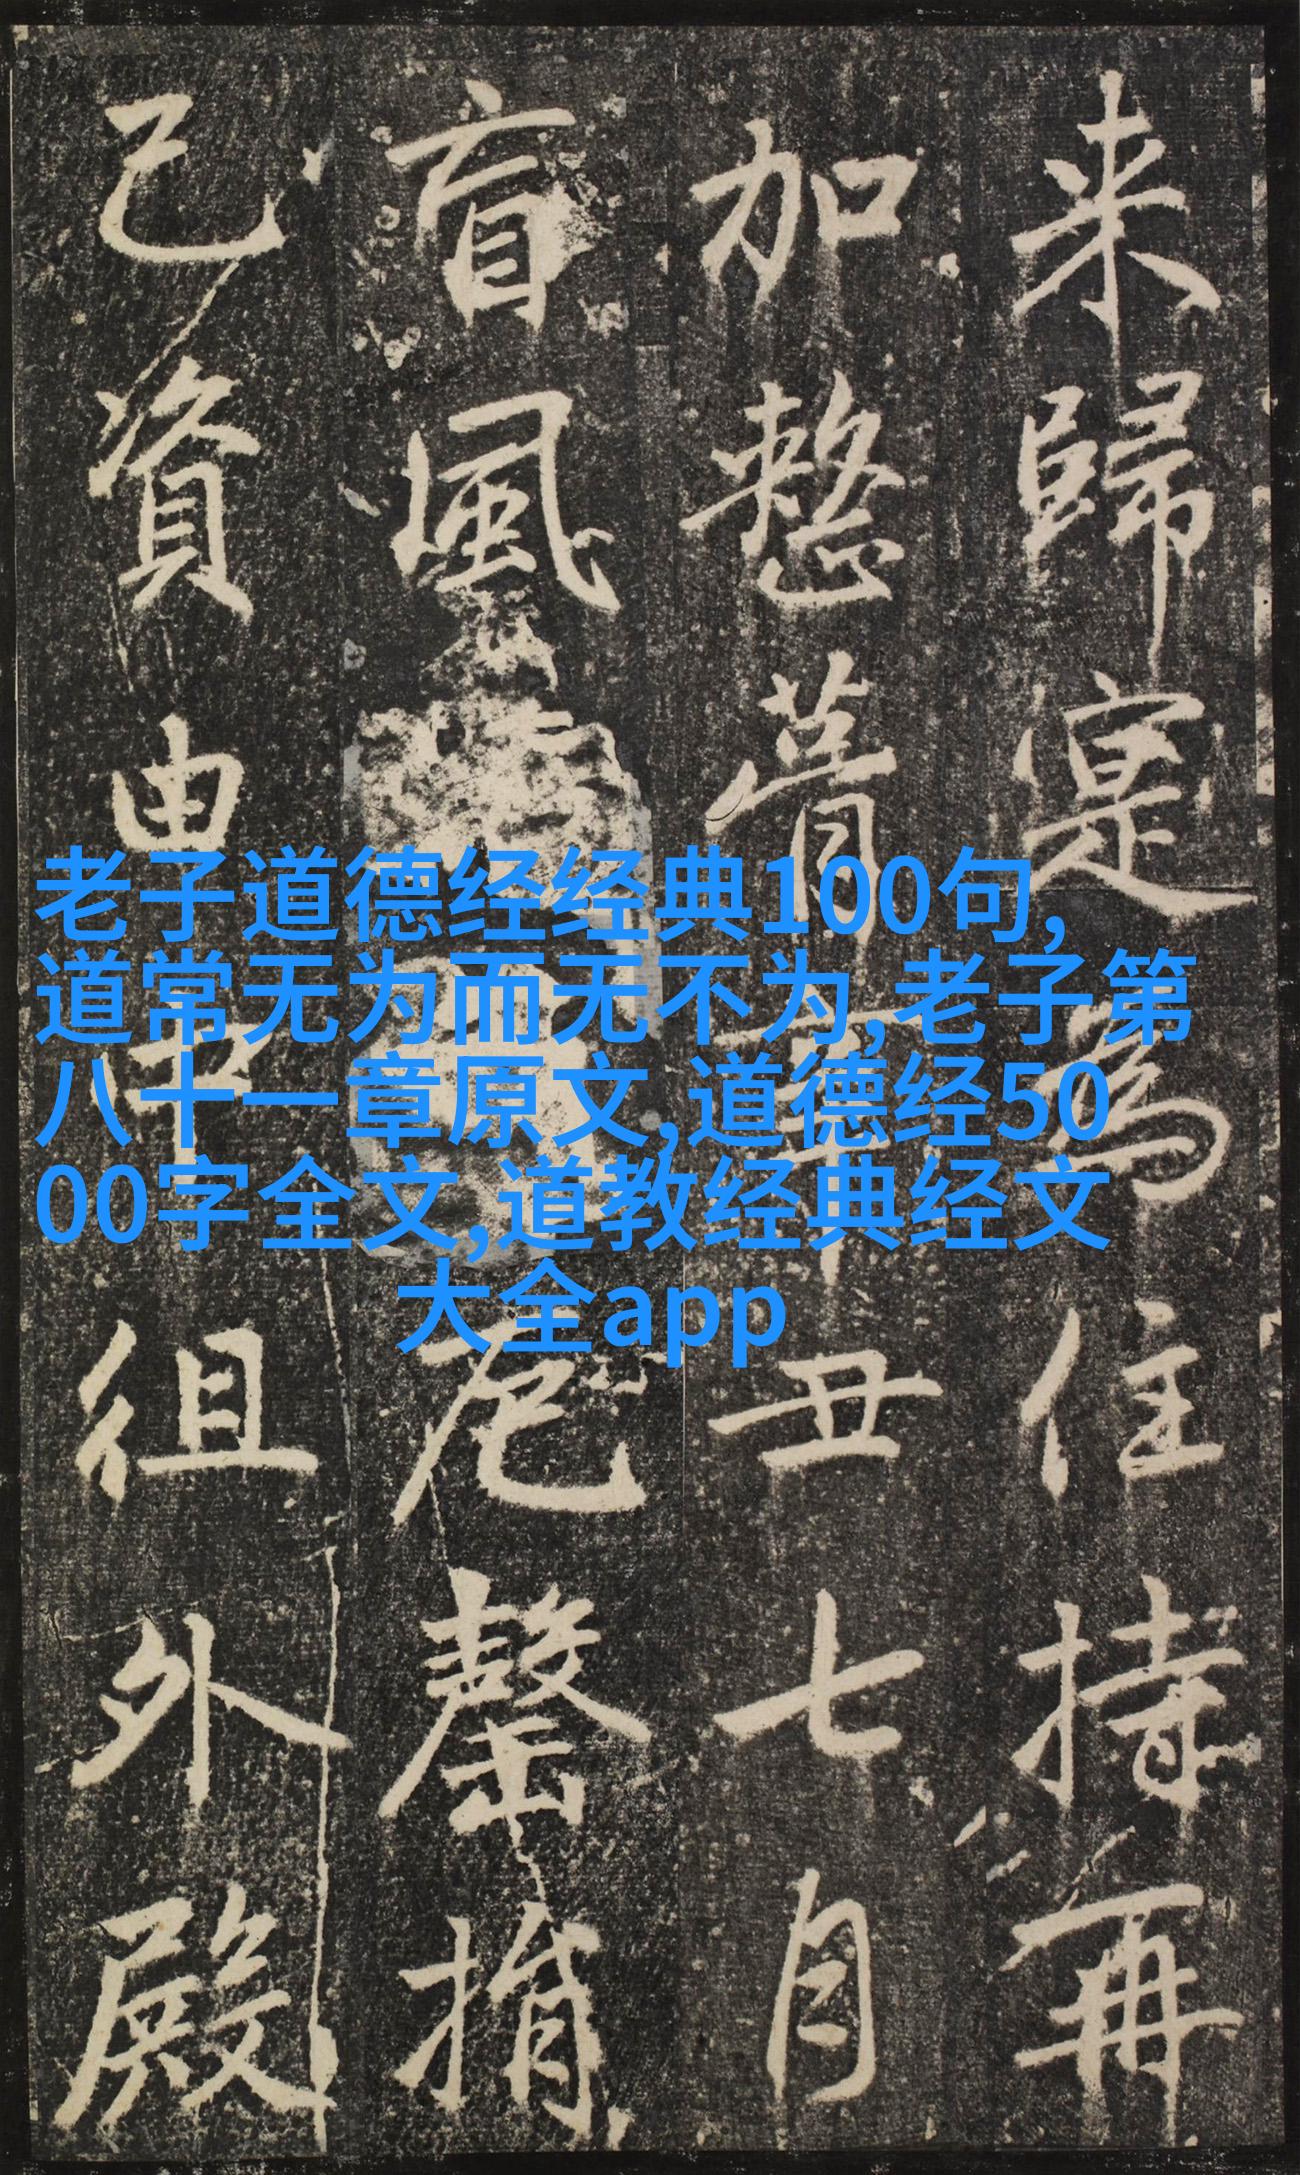 来歸寔爲住持再
加整葺丑七月
盲風罄捐
己資由中徂外殿
老子道德经经典100句,
道常无为而无不为,老子第
八十一章原文,道德经50
00字全文,道教经典经文
大全app